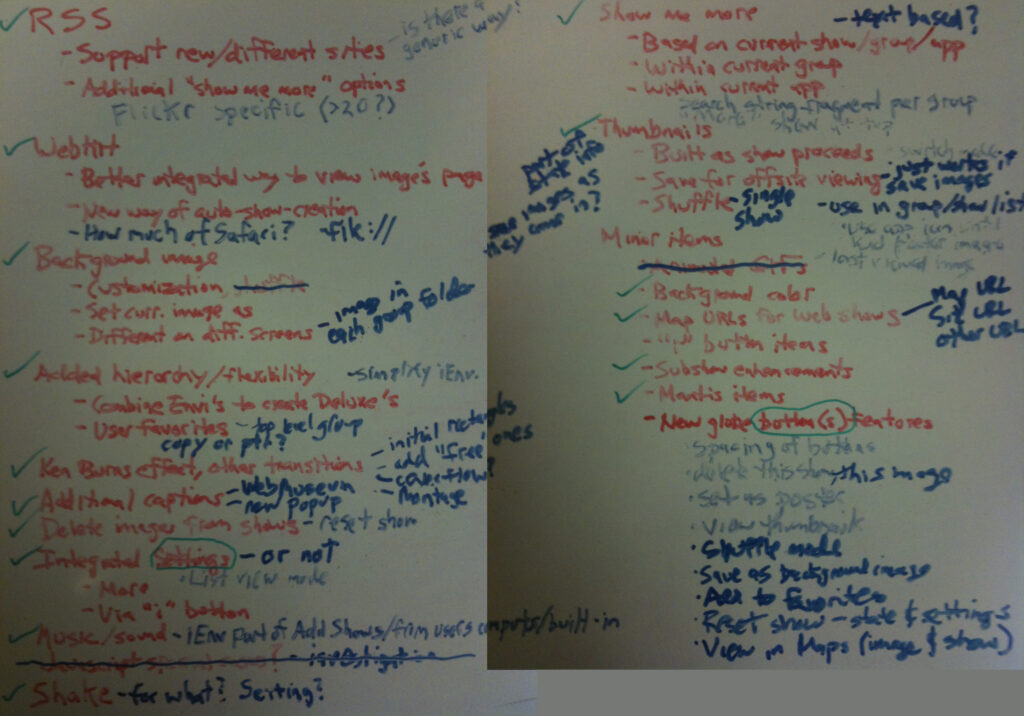 RSS
- Support new/different sites
- is there a generic way?
- Additional "show me more" options
Flickr specific (>20?)
Webkit
- Better integrated way to view image's page
- New way of auto-show-creation
- How much of Safari? - file://
Background image
- Customization
- Set curr. image as
- Different on diff. screens - image in each group folder
Added hierarchy/flexibility - simplify iEnv.
- Combine Envi's to create Deluxe's
- User favorites - top level group
copy or ptr?
Ken Burns effect, other transitions
- initial rectangles
- add "free" ones
- coverflow?
- Montage
Additional captions - Web/museum
- new popup
Delete images from shows - reset show
Integrated settings - or not
• List view mode
- More
- Via "i" button
Music/sound - iEnv part of Add Shows/from users computer/built-in
Shake - for what? Setting?
Show me more - text based?
- Based on current show/group/app
- Within current group
- Within current app
search string fragment per group
Thumbnails
- Built as show proceeds
- Save for offsite viewing - just works if save images
- Shuffle - single show
- use in group/show list
part of state info
save images as they come in?
Use app icon until
last viewed image
Minor items
- Background color
- Map URLs for web shows
Map URL
Site URL
other URL
- "i" button items
- Subshow enhancements
- Mantis items
- New globe button(s) features
• Spacing of buttons
• delete this show, this image
• Set as poster
• View thumbnails
• Shuffle mode
• Save as background image
• Add to Favorites
• Reset show - state & settings
• View in Maps (image & show)